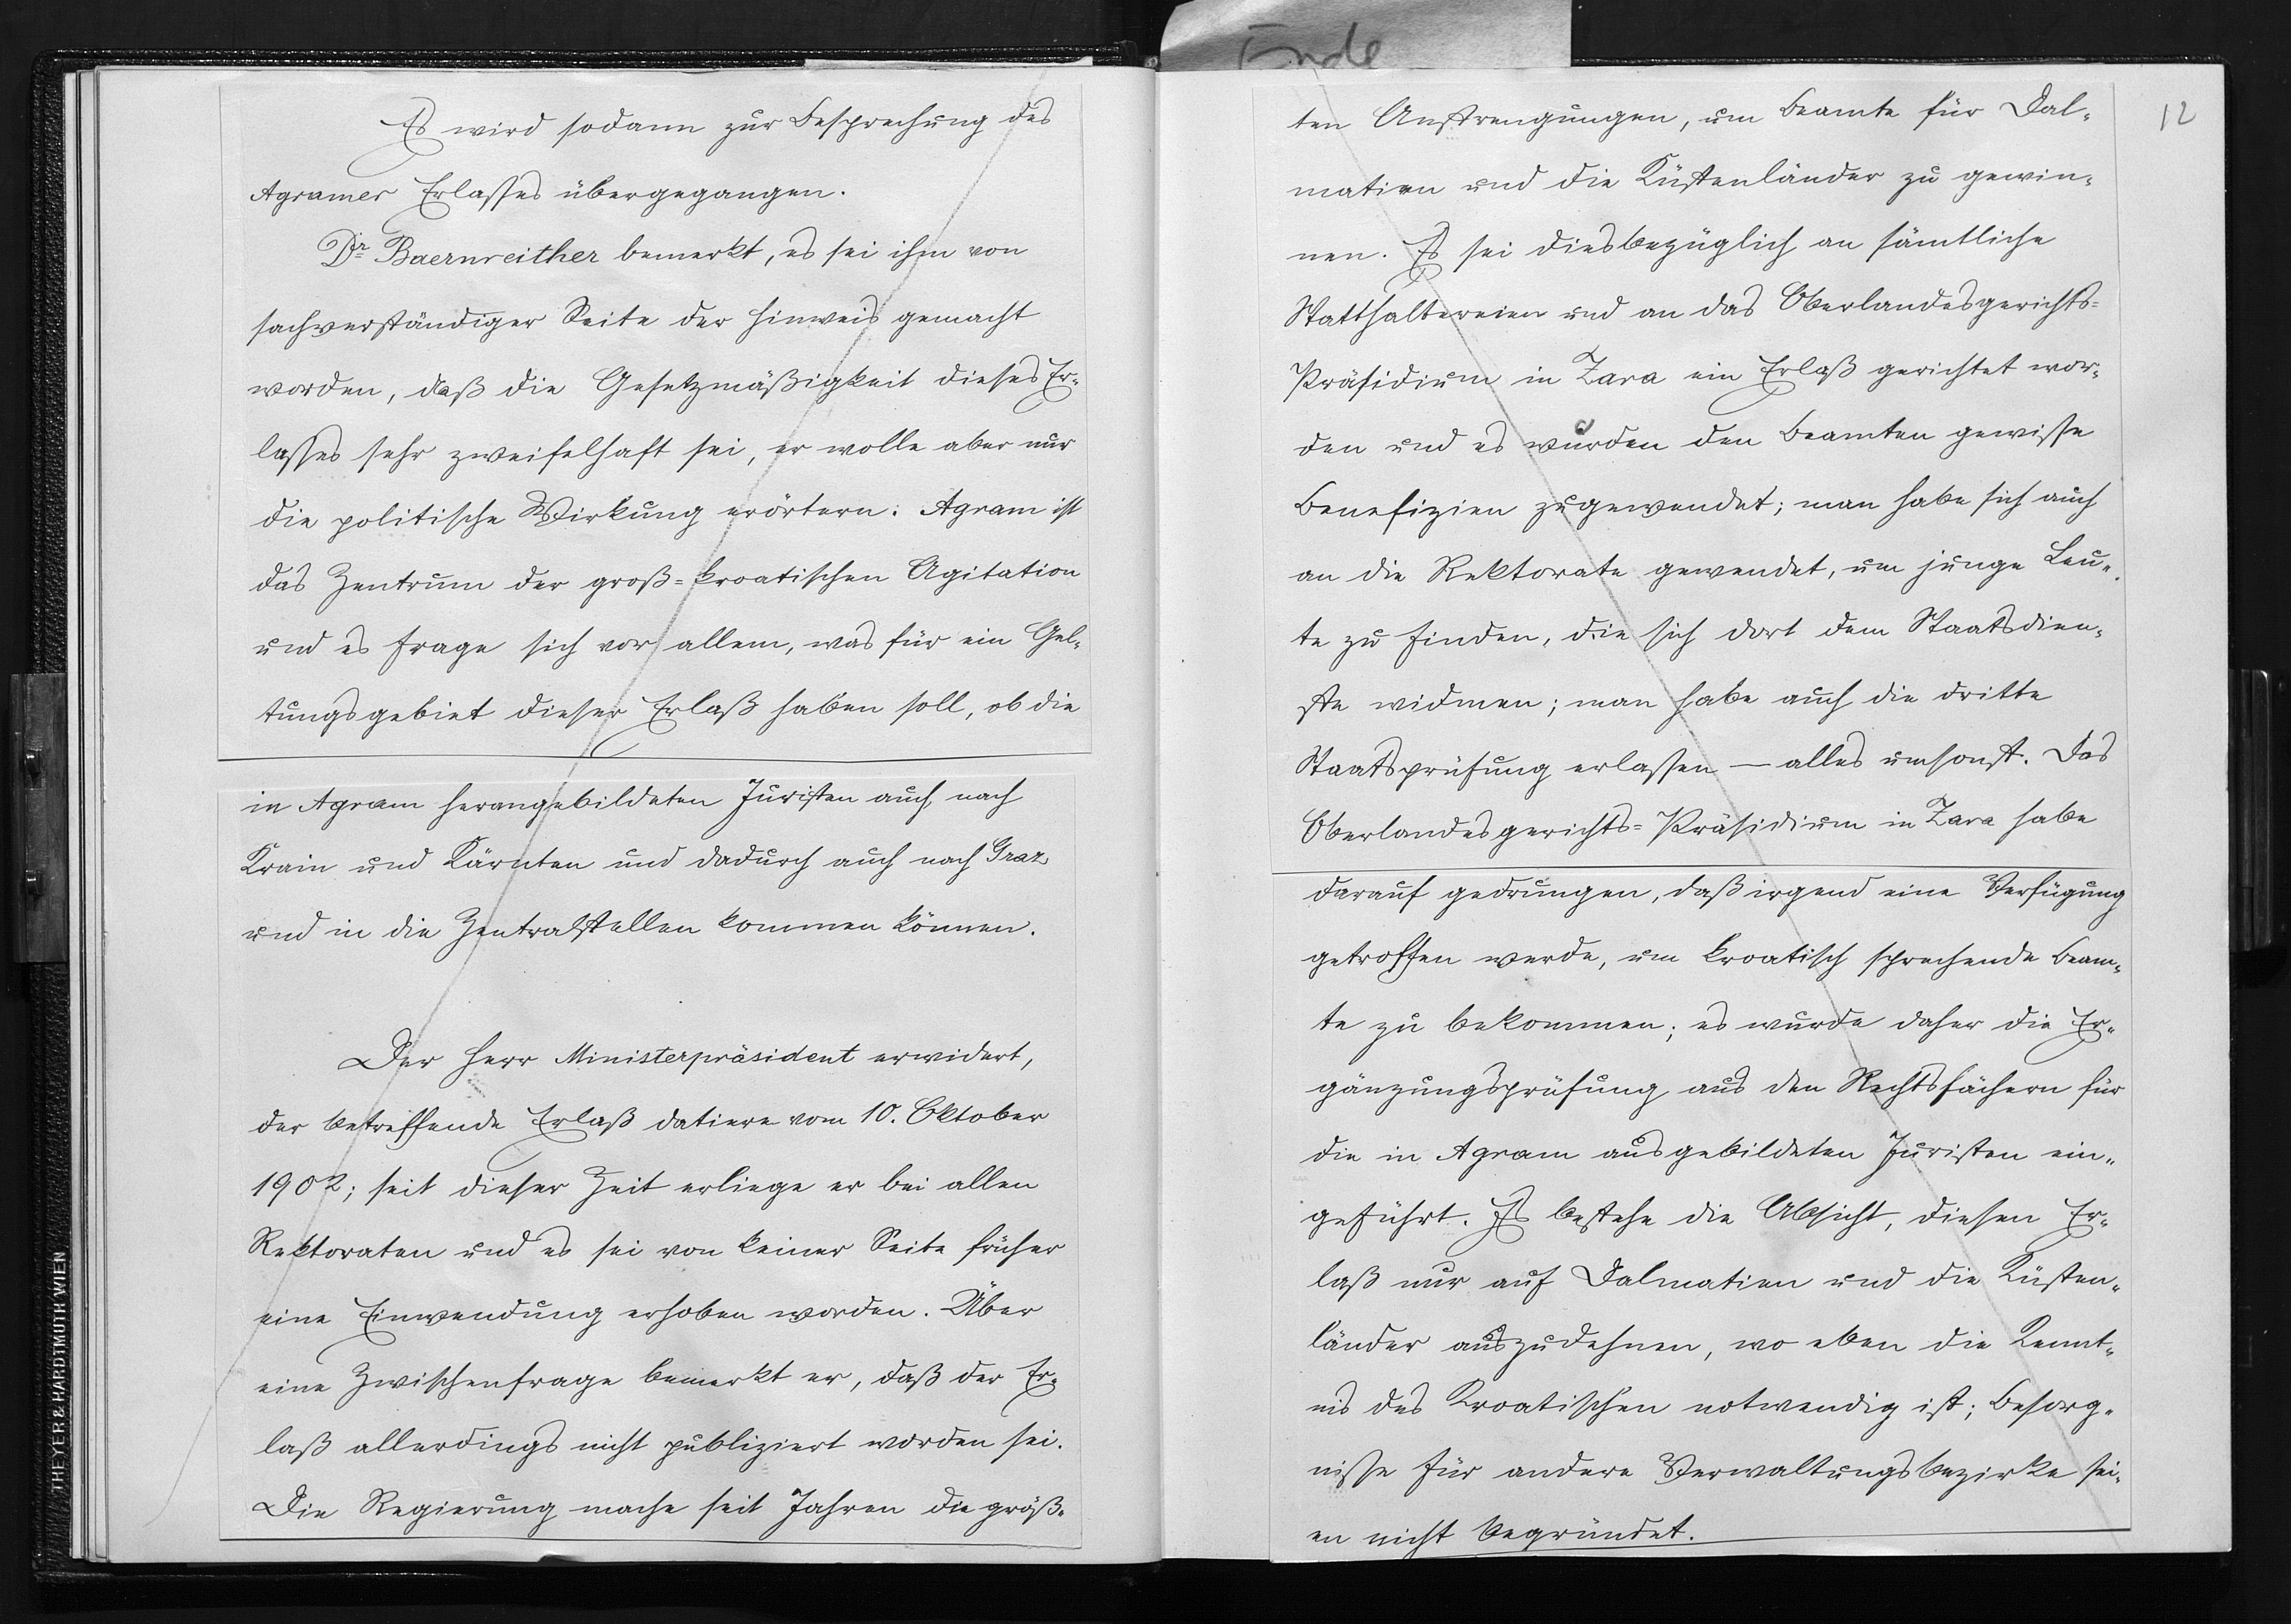 Es wird sodann zur Besprechung des
Agramer Erlasses übergegangen.
Dr Baernreither bemerkt, es sei ihm von
sachverständiger Seite der Hinweis gemacht
worden, daß die Gesetzmäßigkeit dieses Er-
lasses sehr zweifelhaft sei, er wolle aber nur
die politische Wirkung erörtern: Agram ist
das Zentrum der groß-kroatischen Agitation
und es frage sich vor allem, was für ein Gel-
tungsgebiet dieser Erlaß haben soll, ob die
in Agram herangebildeten Juristen auch nach
Krain und Kärnten und dadurch auch nach Graz
und in die Zentralstellen kommen können.
Der Herr Ministerpräsident erwidert,
der betreffende Erlaß datiere vom 10. Oktober
1902; seit dieser Zeit erliege er bei allen
Rektoraten und es sei von keiner Seite früher
eine Einwendung erhoben worden. Über
eine Zwischenfrage bemerkt er, daß der Er-
laß allerdings nicht publiziert worden sei.
Die Regierung mache seit Jahren die größ-
THEYER & HARDTMUTH, WIEN
Ende
12
ten Anstrengungen, um Beamte für Dal-
matien und die Küstenländer zu gewin-
nen. Es sei diesbezüglich an sämtliche
Statthaltereien und an das Oberlandesgerichts-
Präsidium in Zara ein Erlaß gerichtet wor-
den und es wurden den Beamten gewisse
Benefizien zugewendet; man habe sich auch
an die Rektorate gewendet, um junge Leu-
te zu finden, die sich dort dem Staatsdien-
ste widmen; man habe auch die dritte
Staatsprüfung erlassen — alles umsonst. Das
Oberlandesgerichts-Präsidium in Zara habe
darauf gedrungen, daß irgend eine Verfügung
getroffen werde, um kroatisch sprechende Beam-
te zu bekommen; es wurde daher die Er-
gänzungsprüfung aus den Rechtsfächern für
die in Agram ausgebildeten Juristen ein-
geführt. Es bestehe die Absicht, diesen Er-
laß nur auf Dalmatien und die Küsten-
länder auszudehnen, wo eben die Kennt-
nis des Kroatischen notwendig ist; Besorg-
nisse für andere Verwaltungsbezirke sei-
en nicht begründet.